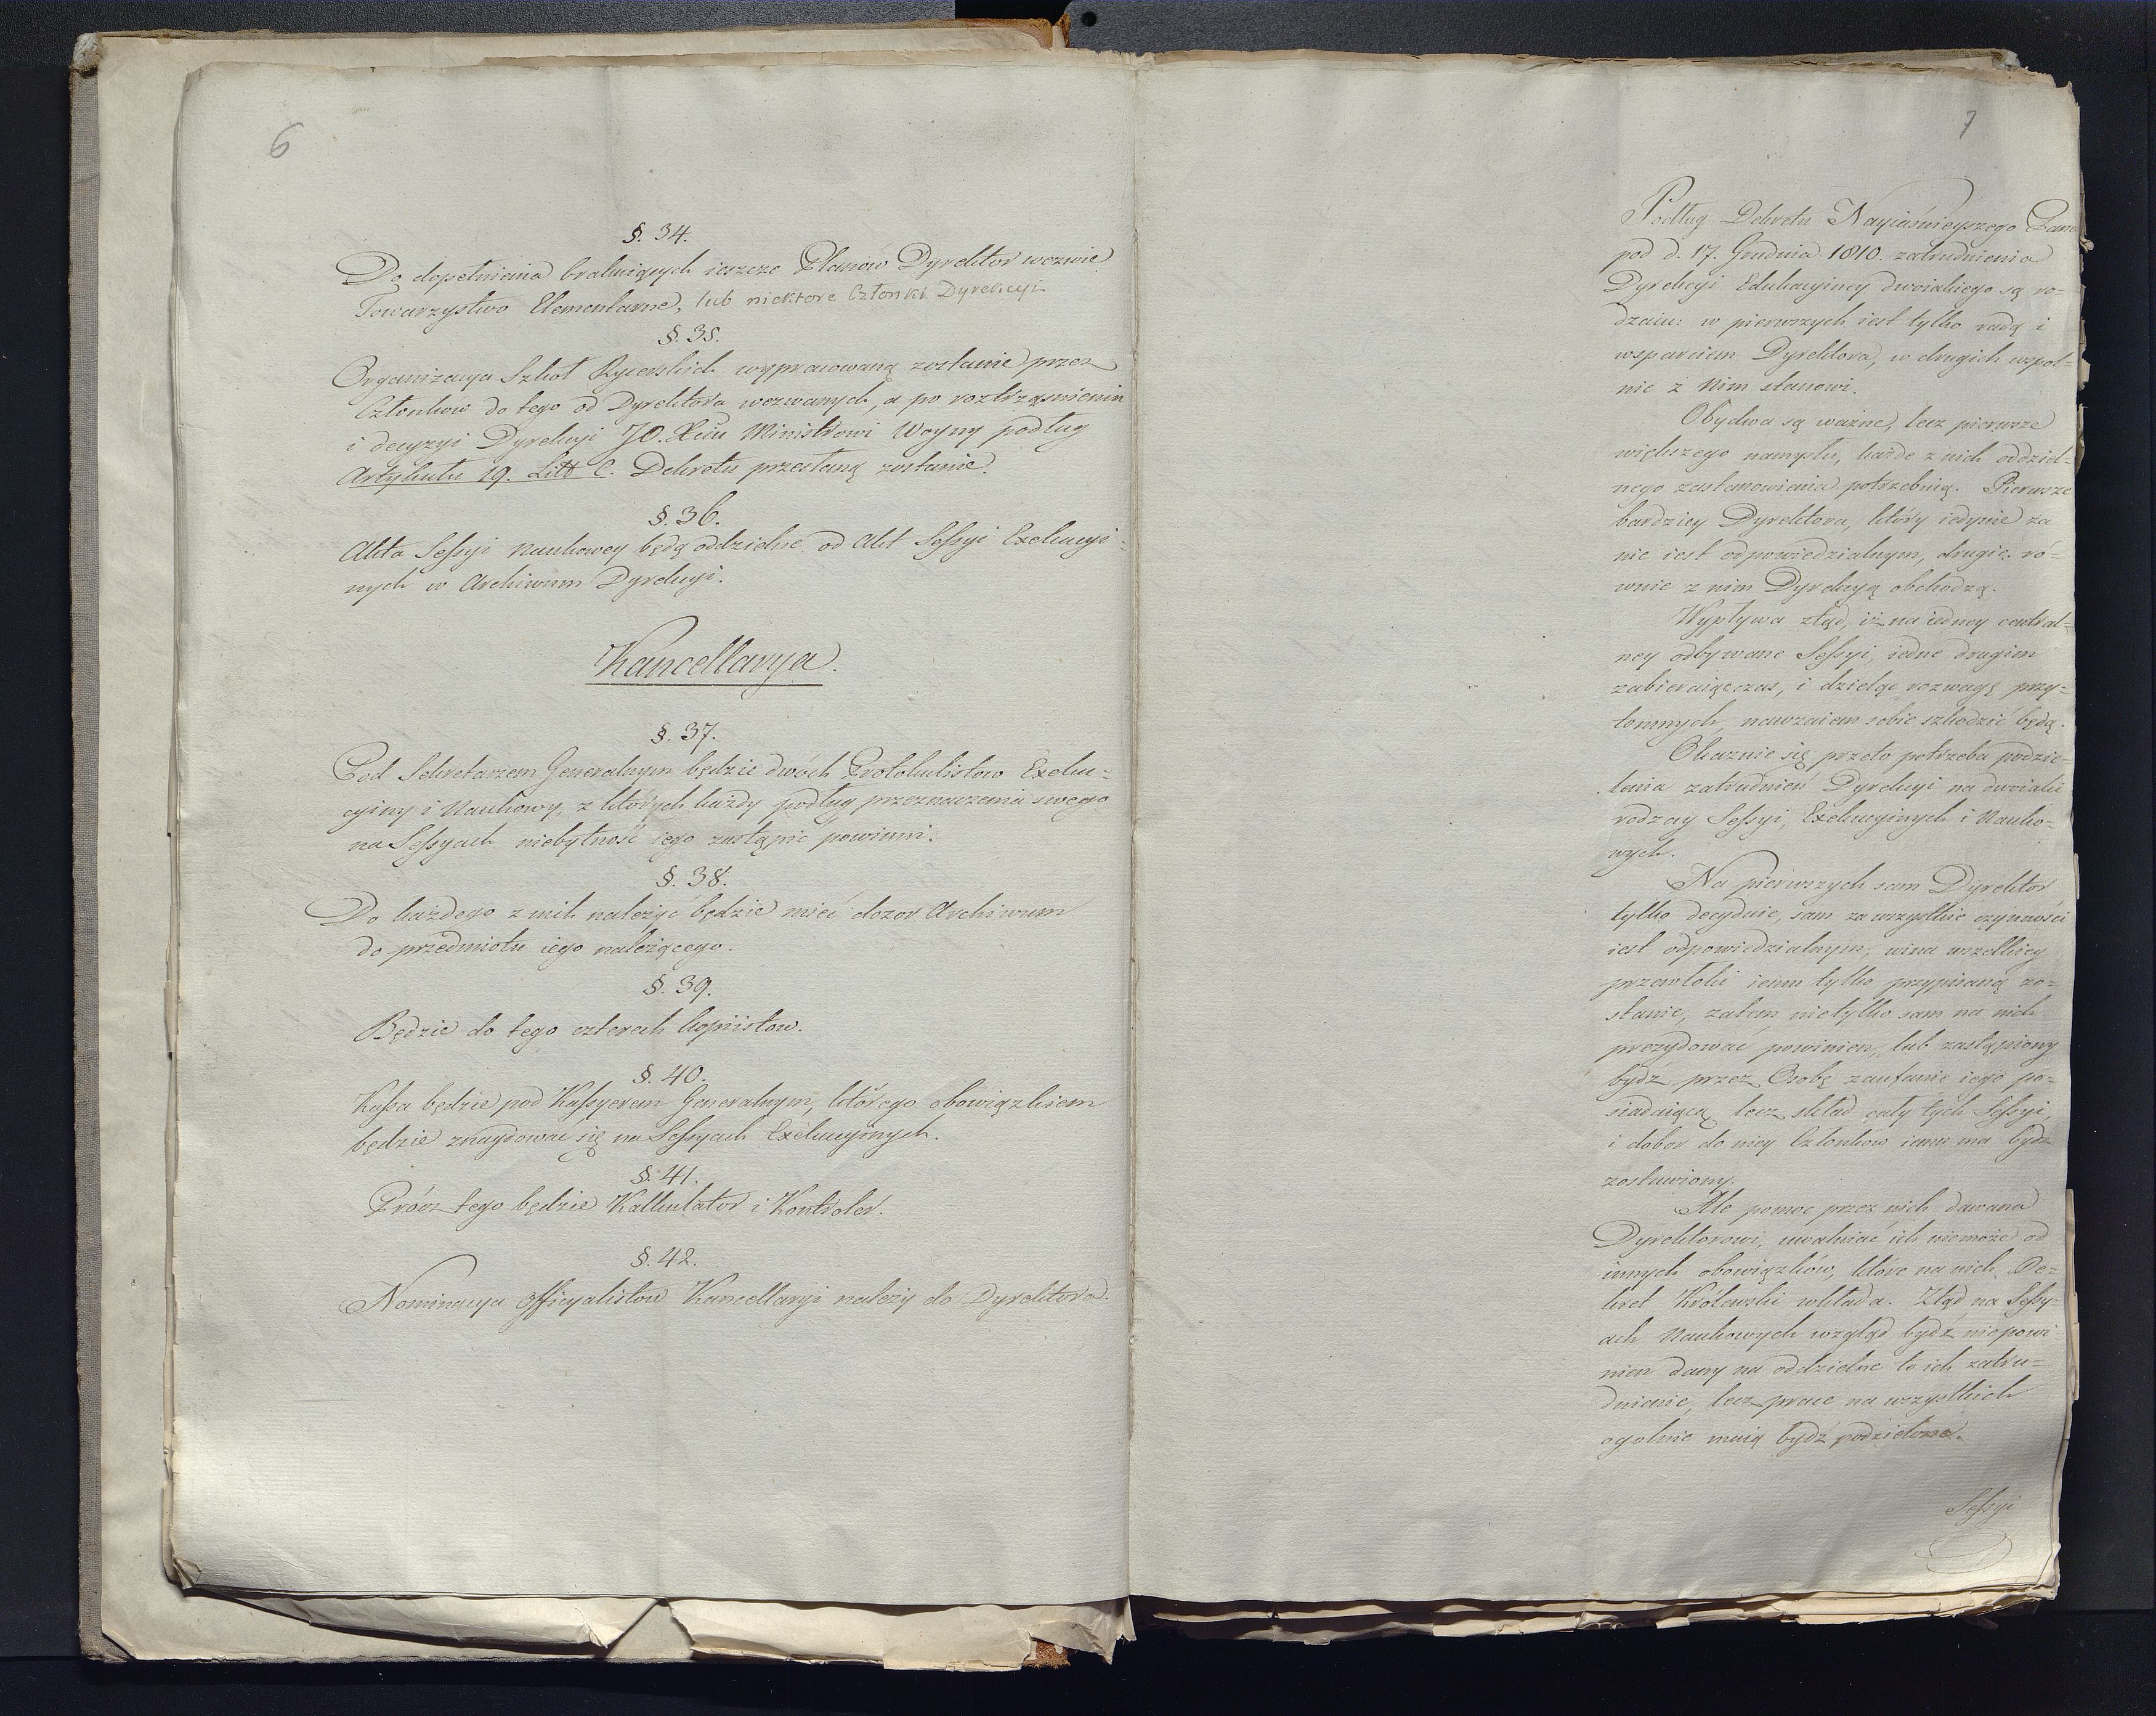 6
§. 34.
Do dopełnienia brakuiących ieszcze Planow Dyrektor wezwie
Towarzystwo Elementarne, lub niektore Członki Dyrekcyi
§. 35.
Organizacya Szkoł Rycerskich wypracowaną zostanie przez
Członkow do tego od Dyrektora wezwanych, a po roztrząsnieniu
i decyzyi Dyrekcyi JO. Xciu Ministrowi Woyny podług
Artykułu 19. Litt C. Dekretu przesłaną zostanie.
§. 36.
Akta Sessyi Naukowey będą oddzielne od Akt Sessyi Exekucyi-
nych w Archiwum Dyrekcyi.
Kancellarya.
§. 37.
Pod Sekretarzem Generalnym będzie dwóch Protokulistow Exeku=
cyiny i Naukowy, z których każdy podług przeznaczenia swego
na Sessyach niebytność iego zastąpić powinni.
§. 38.
Do każdego z nich należyć będzie mieć dozor Archiwum
do przedmiotu iego należącego.
§. 39.
Będzie do tego czterech kopiistow.
§. 40.
Kassa będzie pod Kassyerem Generalnym, którego obowiązkiem
będzie znaydować się na Sessyach Exekucyinych.
§. 41.
Prócz tego będzie Kalkulator i Kontroler.
§. 42.
Nominacya Officyalistow Kancellaryi należy do Dyrektora.
7
Podług Dekretu Nayiaśnieyszego Pana
pod d. 17. Grudnia 1810. zatrudnienia
Dyrekcyi Edukacyiney dwoiakiego są ro=
dzaiu: w pierwszych iest tylko radą i
wsparciem Dyrektora, w drugich wspol=
nie z Nim stanowi.
Obydwa są ważne, lecz pierwsze
większego namysłu, każde z nich oddziel=
nego zastanowienia potrzebuią. Pierwsze
bardziey Dyrektora, który iedynie za
nie iest odpowiedzialnym, drugie ró=
wnie z nim Dyrekcyą obchodzą.
Wypływa ztąd, iż na iedney central=
ney odbywane Sessyi, iedne drugim
zabieraiąc czas, i dzieląc rozwagę przy=
tomnych, nawzaiem sobie szkodzić będą.
Okaznie się przeto potrzeba podzie=
lenia zatrudnień Dyrekcyi na dwoiaki
rodzay Sessyi, Exekucyinych i Nauko=
wych.
Na pierwszych sam Dyrektor
tylko decyduie, sam za wszystkie czynności
iest odpowiedzialnym, wina wszelkiey
przewłoki iemu tylko przypisaną zo=
stanie, zatem nietylko sam na nich
prezydować powinien, lub zastąpiony
bydź przez Osobę zaufanie iego po=
siadaiącą, lecz skład cały tych Sessyi,
i dobor do niey Członkow iemu ma bydź
zostawiony.
Ale pomoc przez nich dawana
Dyrektorowi, uwalniać ich niemoże od
innych obowiązków, które na nich De=
kret Królewski wkłada. Ztąd na Sessy-
ach Naukowych wzgląd bydź niepowi
nien dany na oddzielne to ich zatru=
dnienie, lecz prace na wszystkich
ogolnie maią bydź podzielone.
Sessyi